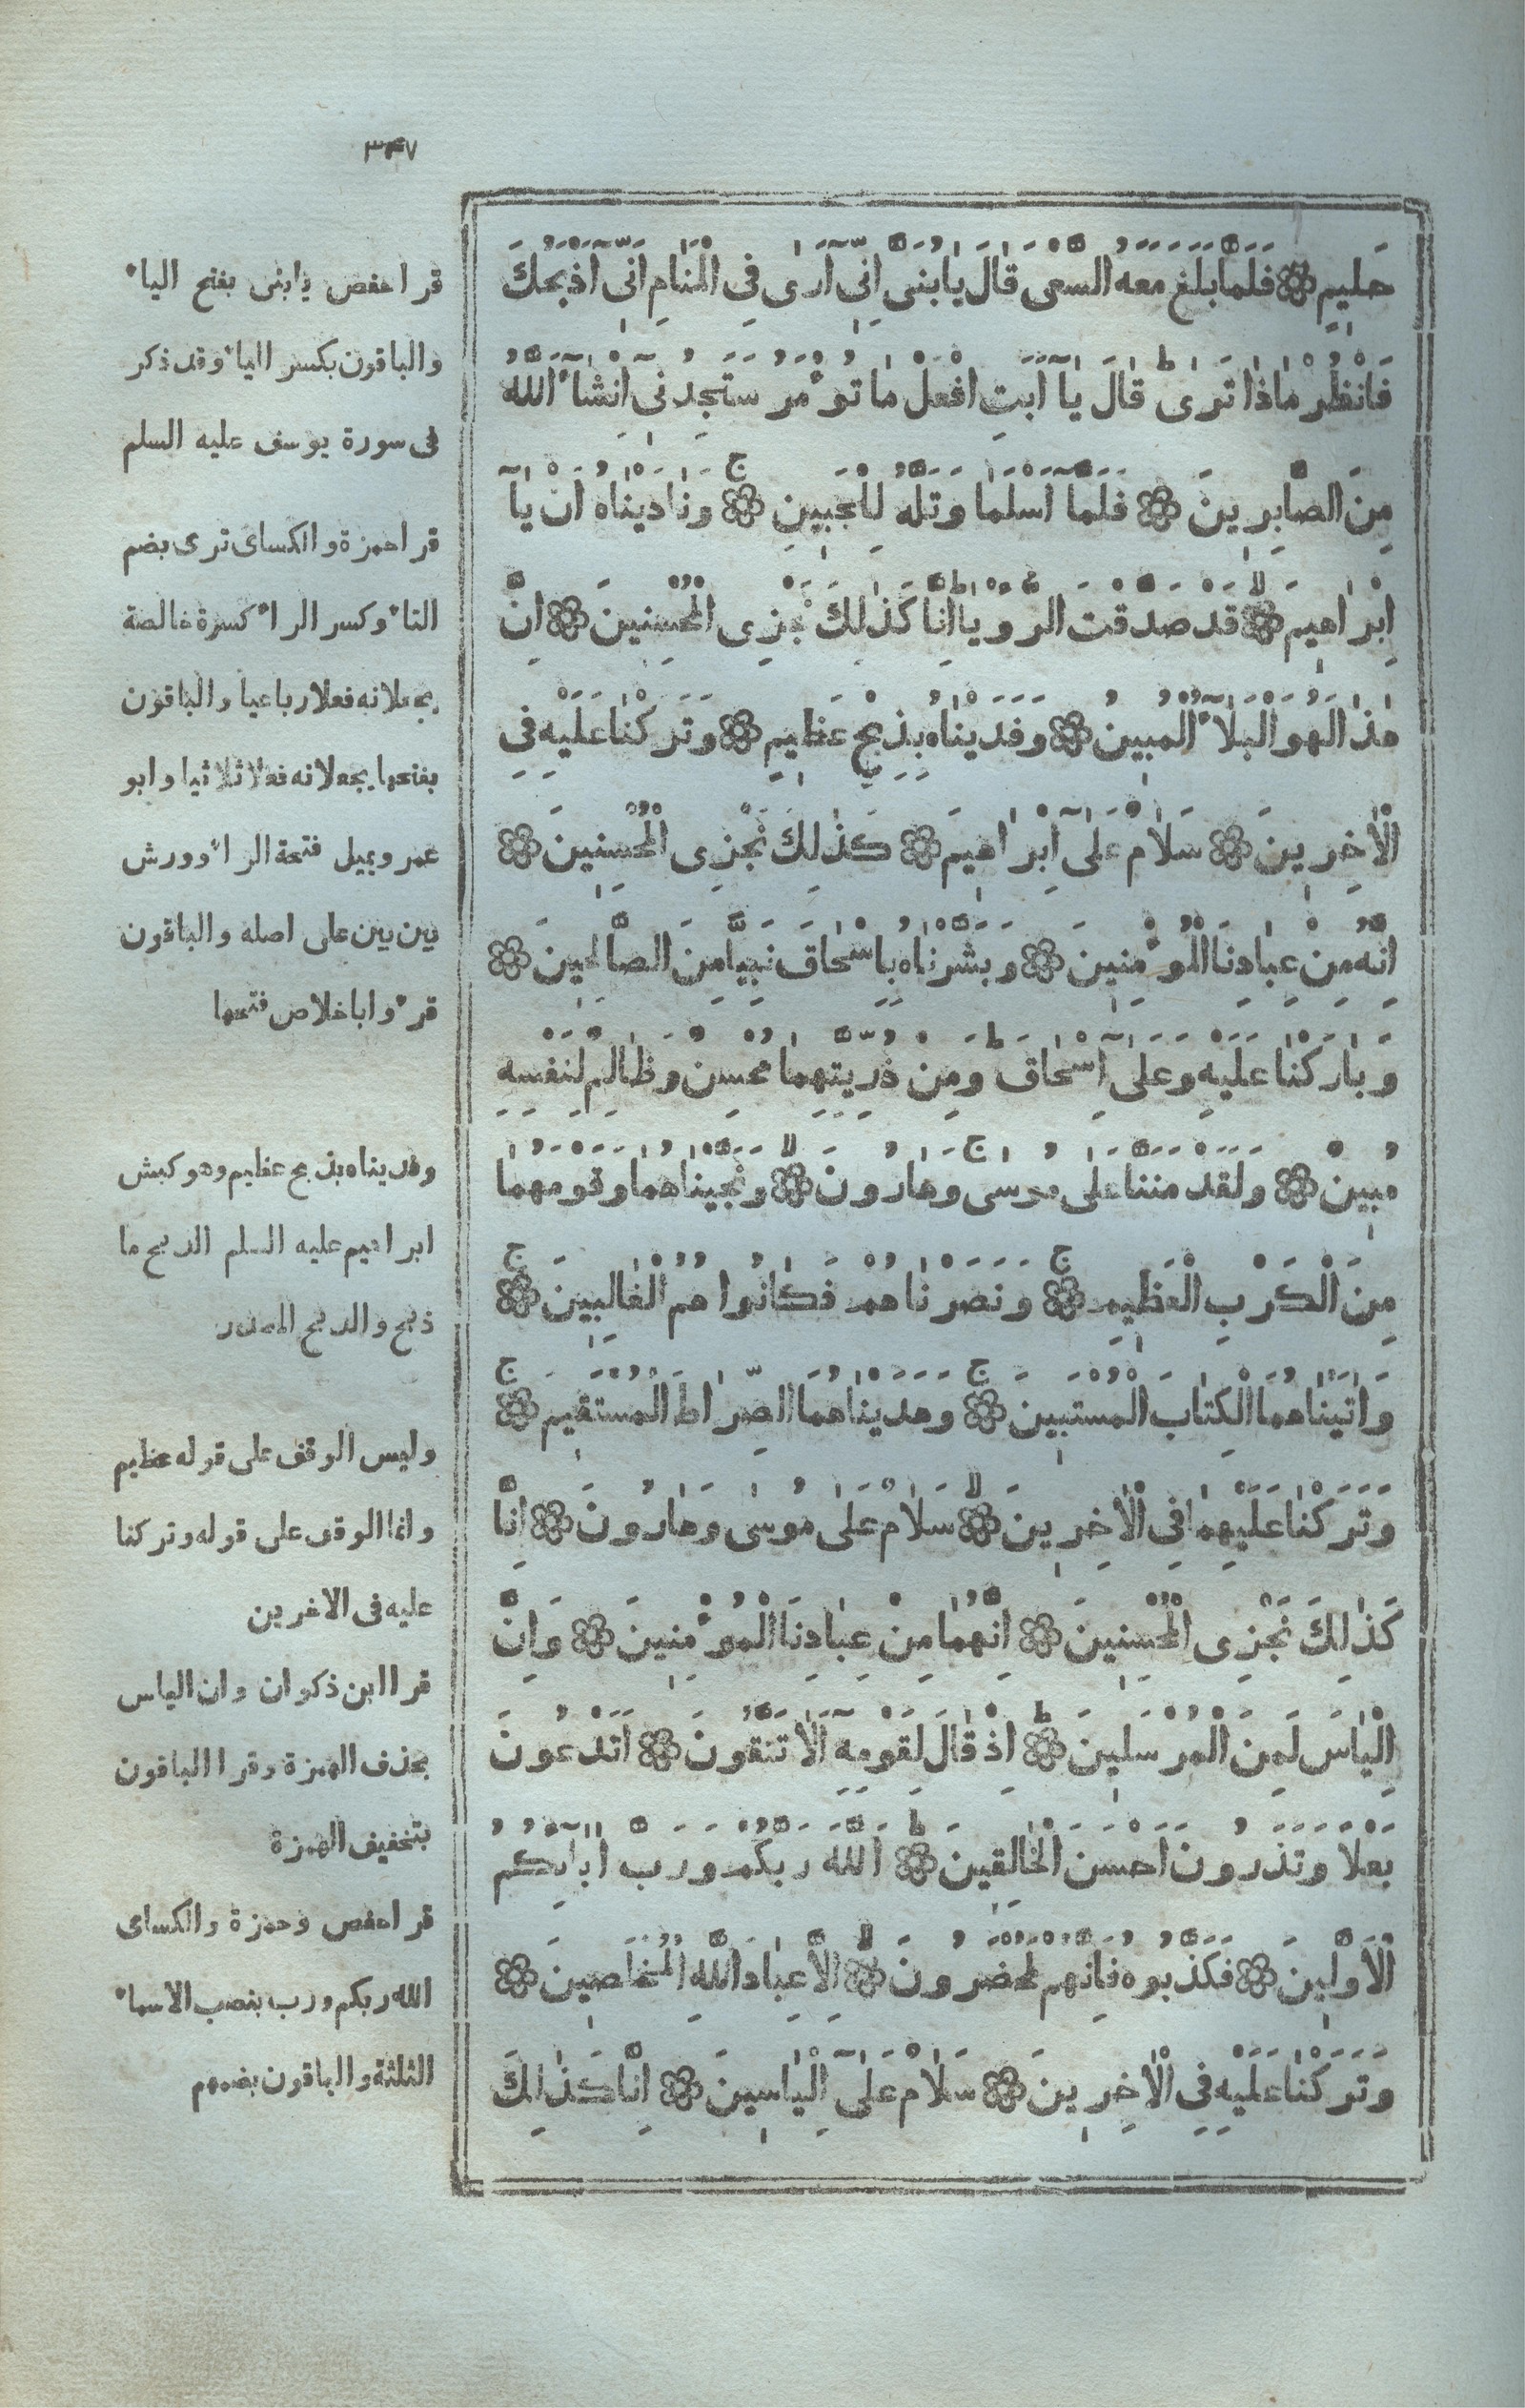 ٣٤٧
حَلِيمٍ ۞ فَلَمَّا بَلَغَ مَعَهُ السَّعْىَ قَالَ يَا بُنَىِّ اِنِّىٓ اَرٰى فِى الْمَنَامِ اَنِّىٓ اَذْبَحُكَ
فَانْظُرْ مَاذَا تَرٰى ط قَالَ يَآ اَبَتِ افْعَلْ مَا تُؤْمَرُ سَتَجِدُنِىٓ اِنْشَآءَ اللّٰهُ
مِنَ الصَّابِرِينَ ۞ فَلَمَّآ اَسْلَمَا وَتَلَّهُ لِلْجَبِينِ ج ۞ وَنَادَيْنَاهُ اَنْ يَآ
اِبْرَاهِيمَ لا ۞ قَدْ صَدَّقْتَ الرُّؤْيَا ط اِنَّا كَذٰلِكَ نَجْزِى الْمُحْسِنِينَ ۞ اِنَّ
هٰذَا لَهُوَ الْبَلَآءُ الْمُبِينُ ۞ وَفَدَيْنَاهُ بِذِبْحٍ عَظِيمٍ ۞ وَتَرَكْنَا عَلَيْهِ فِى
الْاٰخِرِينَ ۞ سَلَامٌ عَلٰىٓ اِبْرَاهِيمَ ۞ كَذٰلِكَ نَجْزِى الْمُحْسِنِينَ ۞
اِنَّهُ مِنْ عِبَادِنَا الْمُؤْمِنِينَ ۞ وَبَشَّرْنَاهُ بِاِسْحَاقَ نَبِيًّا مِنَ الصَّالِحِينَ ۞
وَبَارَكْنَا عَلَيْهِ وَعَلٰىٓ اِسْحَاقَ ط وَمِنْ ذُرِّيَّتِهِمَا مُحْسِنٌ وَظَالِمٌ لِنَفْسِهِ
مُبِينٌ ۞ وَلَقَدْ مَنَنَّا عَلٰى مُوسٰى وَهَارُونَ ج ۞ وَنَجَّيْنَاهُمَا وَقَوْمَهُمَا
مِنَ الْكَرْبِ الْعَظِيمِ ج ۞ وَنَصَرْنَاهُمْ فَكَانُوا هُمُ الْغَالِبِينَ ج ۞
وَاٰتَيْنَاهُمَا الْكِتَابَ الْمُسْتَبِينَ ج ۞ وَهَدَيْنَاهُمَا الصِّرَاطَ الْمُسْتَقِيمَ ج ۞
وَتَرَكْنَا عَلَيْهِمَا فِى الْاٰخِرِينَ لا ۞ سَلَامٌ عَلٰى مُوسٰى وَهَارُونَ ۞ اِنَّا
كَذٰلِكَ نَجْزِى الْمُحْسِنِينَ ۞ اِنَّهُمَا مِنْ عِبَادِنَا الْمُؤْمِنِينَ ۞ وَاِنَّ
اِلْيَاسَ لَمِنَ الْمُرْسَلِينَ ط ۞ اِذْ قَالَ لِقَوْمِهِٓ اَلَا تَتَّقُونَ ۞ اَتَدْعُونَ
بَعْلًا وَتَذَرُونَ اَحْسَنَ الْخَالِقِينَ ط ۞ اَللّٰهَ رَبَّكُمْ وَرَبَّ اٰبَآئِكُمُ
الْاَوَّلِينَ ۞ فَكَذَّبُوهُ فَاِنَّهُمْ لَمُحْضَرُونَ لا ۞ اِلَّا عِبَادَ اللّٰهِ الْمُخْلَصِينَ ۞
وَتَرَكْنَا عَلَيْهِ فِى الْاٰخِرِينَ ۞ سَلَامٌ عَلٰىٓ اِلْيَاسِينَ ۞ اِنَّا كَذٰلِكَ
قرا حفص يا بنى بفتح الياء
والباقون بكسر الياء وقد ذكر
فى سورة يوسف عليه السلم
قرا حمزة والكساى ترى بضم
التاء وكسر الراء كسرة خالصة
يجعلانه فعلا رباعيا والباقون
بفتحها يجعلانه فعلا ثلاثيا وابو
عمرو يميل فتحة الراء وورش
بين بين على اصله والباقون
قرءوا باخلاص فتحها
وفديناه بذبح عظيم وهو كبش
ابراهيم عليه السلم الذبح ما
ذبح والذبح المصدر
وليس الوقف على قوله عظيم
وانما الوقف على قوله وتركنا
عليه فى الاخرين
قرا ابن ذكوان وان الياس
بحذف الهمزة وقرا الباقون
بتخفيف الهمزة
قرا حفص وحمزة والكساى
الله ربكم ورب بنصب الاسماء
الثلثة والباقون بضمهم